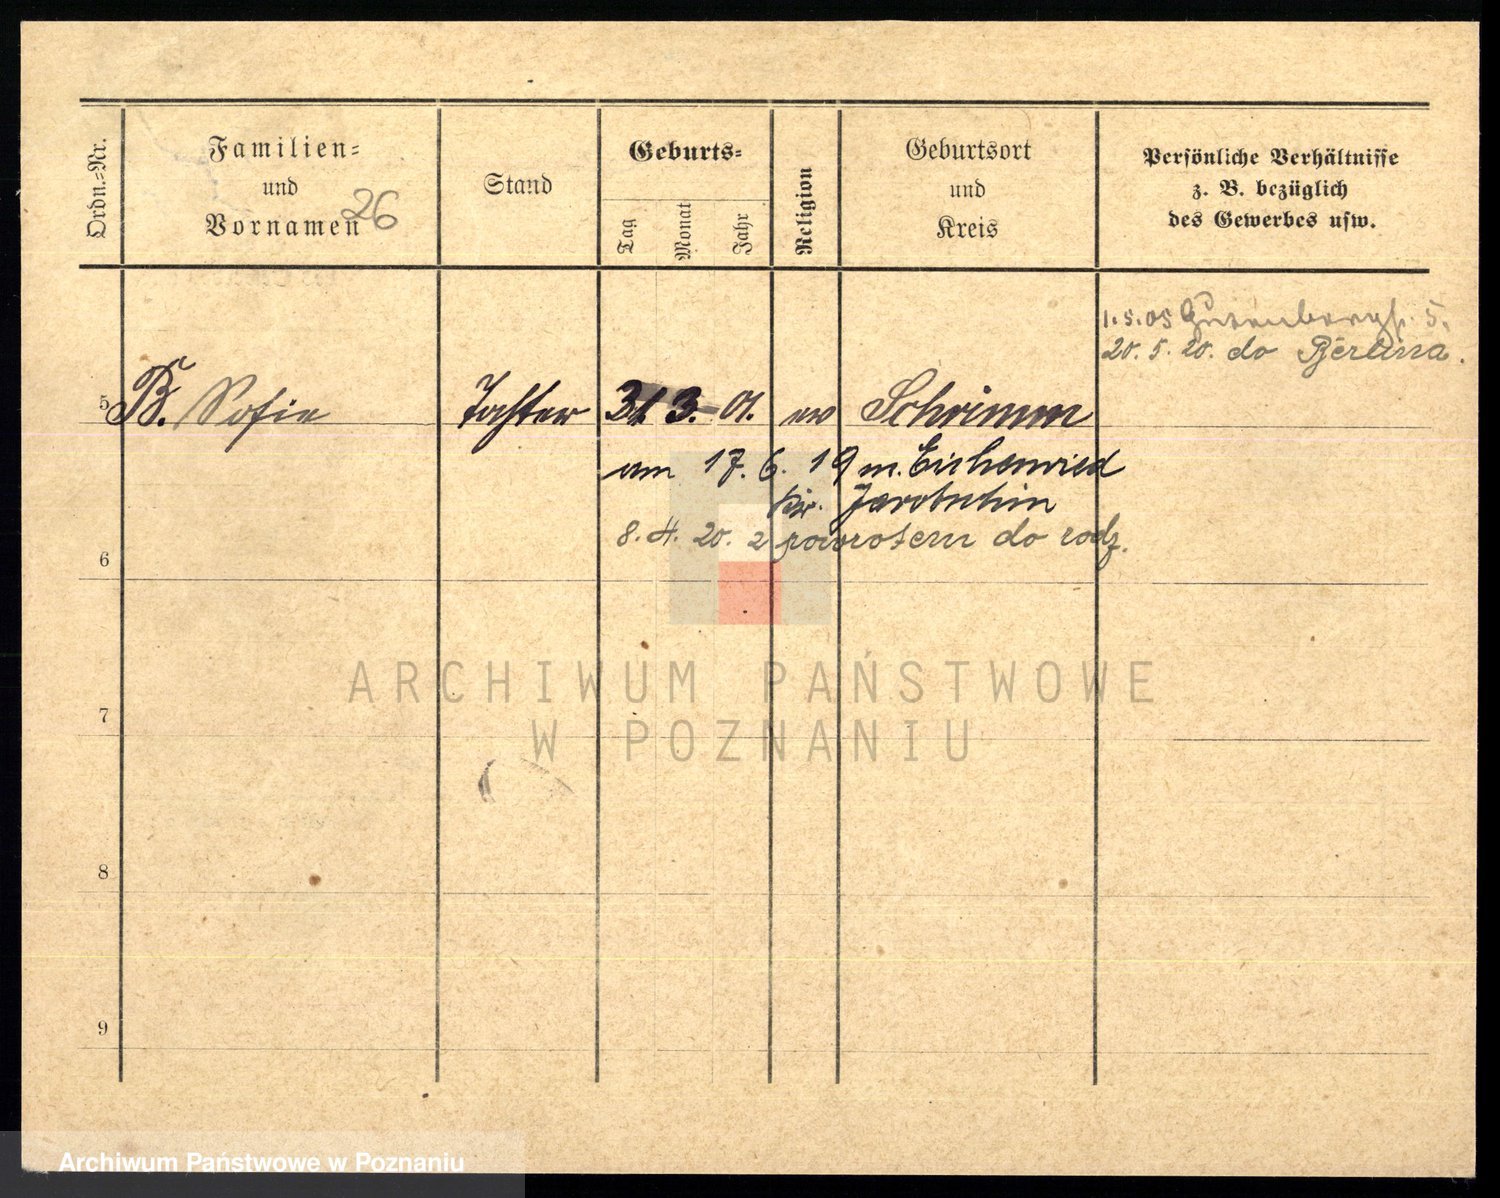 Ordn.=Nr.
Familien=
und
Vornamen
26
Stand
Geburts=
Tag
Monat
Jahr
Religion
Geburtsort
und
Kreis
Persönliche Verhältnisse
z. B. bezüglich
des Gewerbes usw.
1.5.05 Gutenbergstr. 5.
20. 5. 20. do Berlina.
5 B. Sofie Tochter 31 3. 01. ev Schrimm
am 17. 6. 19 n. Eichenried
Kr. Jarotschin
8. 4. 20. z powrotem do rodz.
6
7
8
9
ARCHIWUM PAŃSTWOWE
W POZNANIU
Archiwum Państwowe w Poznaniu